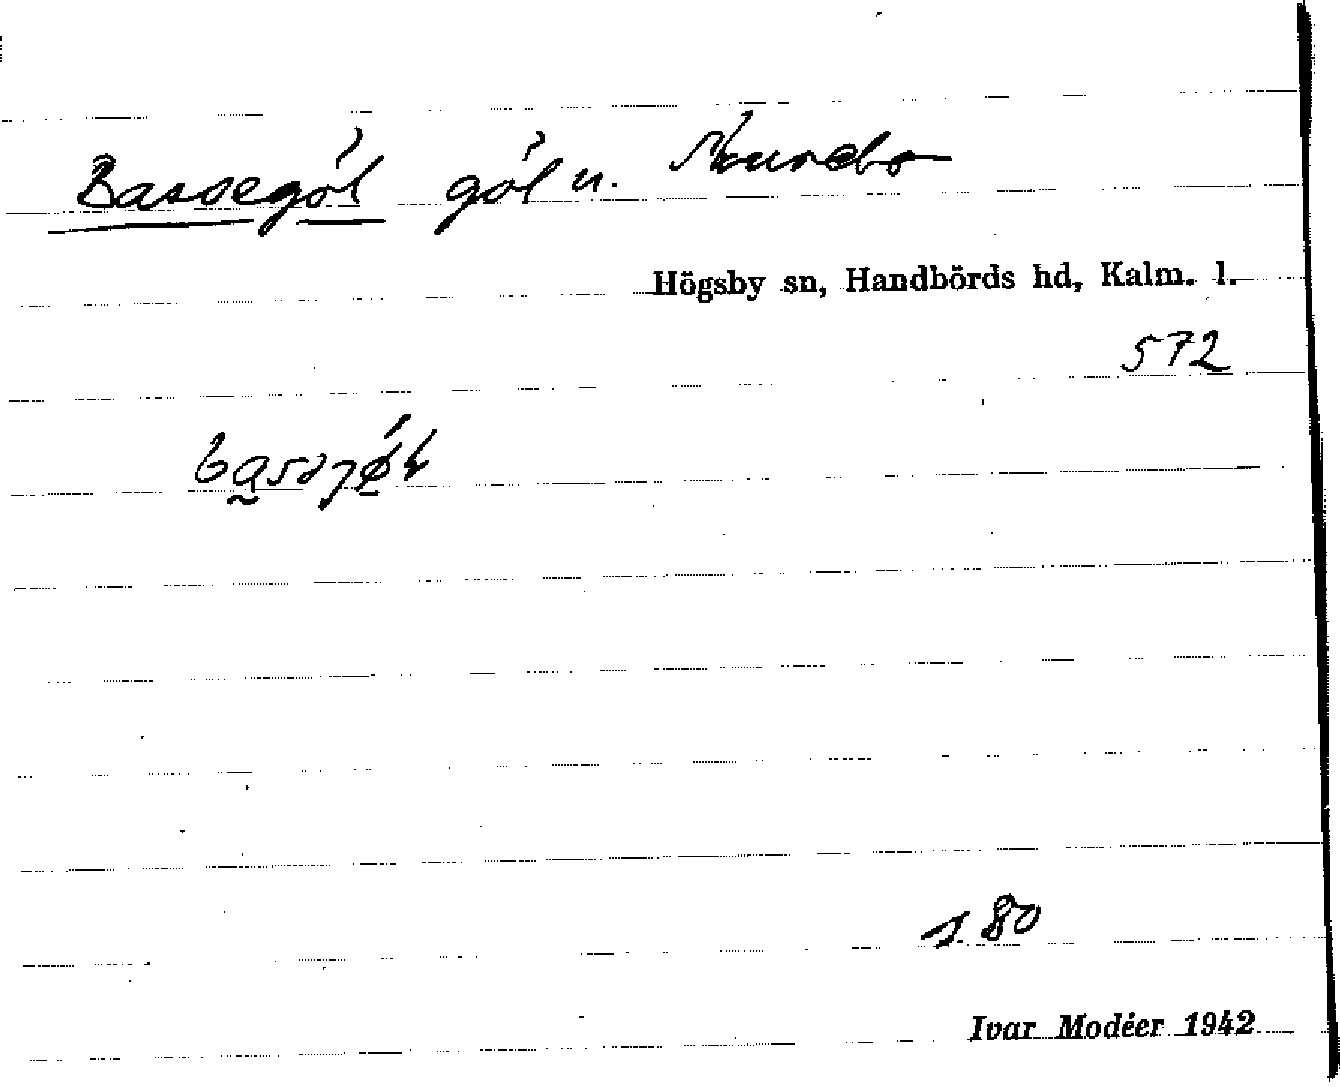 Bassegöl göl n.
Högsby sn, Handbörds hd, Kalm. l.
572
s. 80
Ivar Modéer 1942